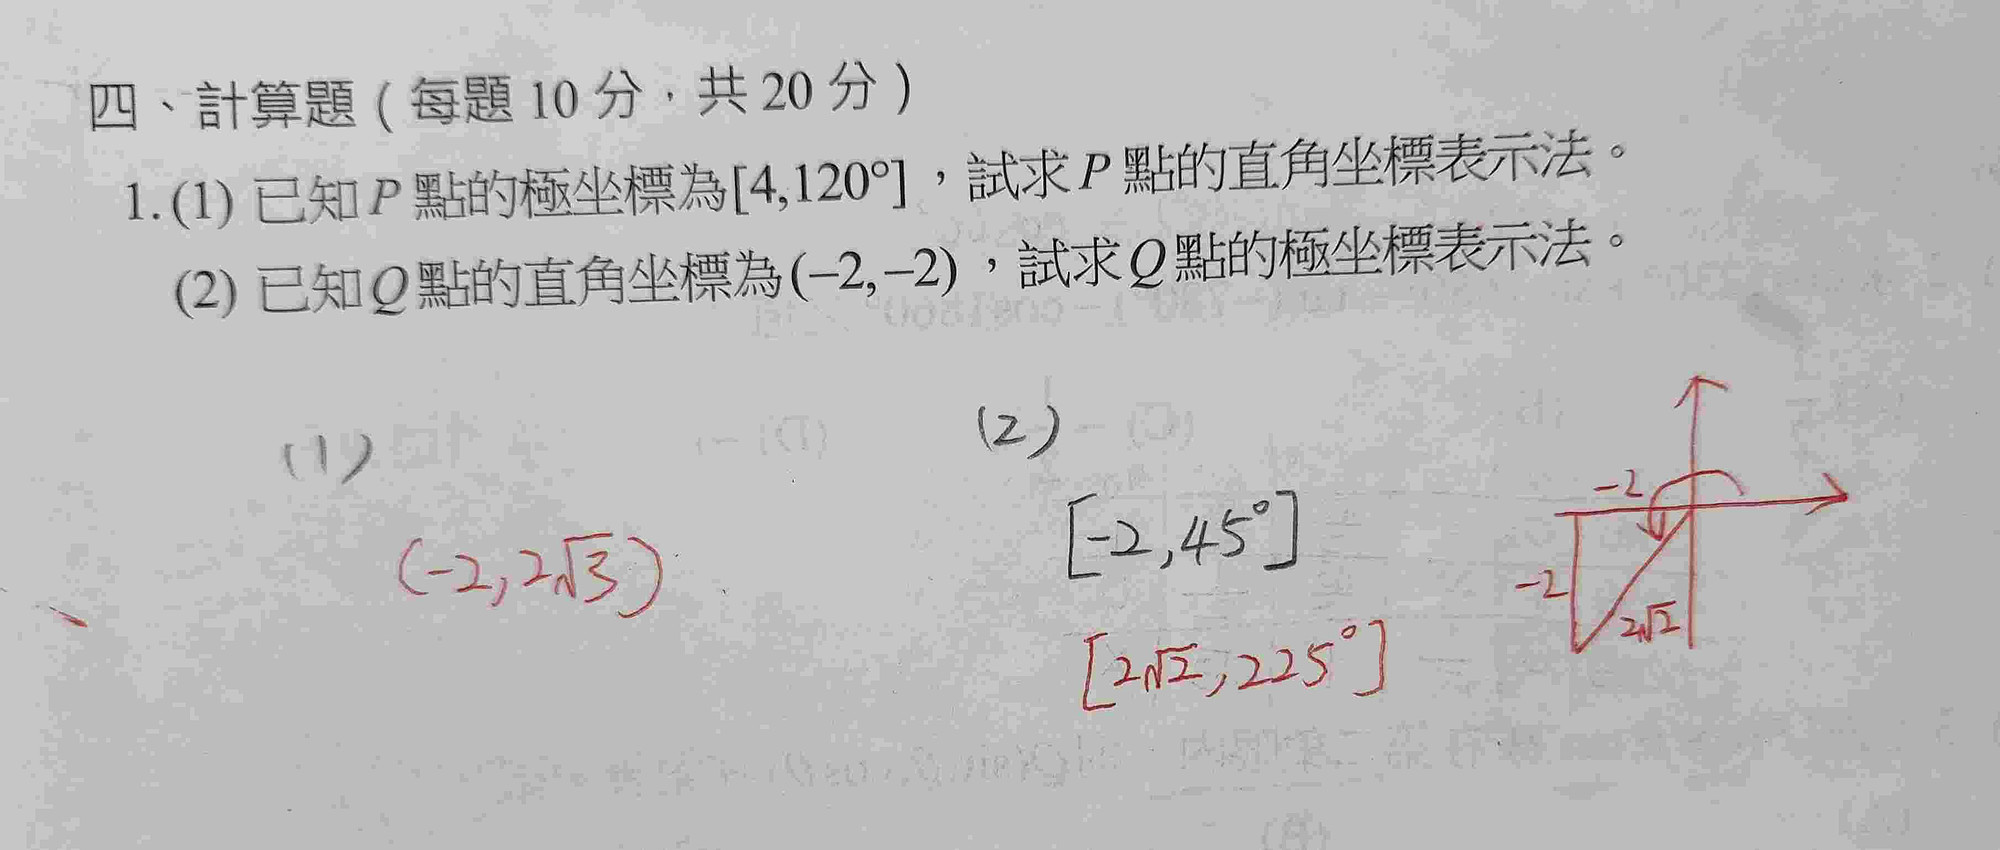 四、計算題(每題 10 分，共 20 分)
1.(1) 已知P點的極坐標為[4,120°]，試求P點的直角坐標表示法。
(2) 已知Q點的直角坐標為(−2,−2)，試求Q點的極坐標表示法。
(1)
(-2, 2√3)
(2)
[-2, 45°]
[2√2, 225°]
-2
-2
2√2